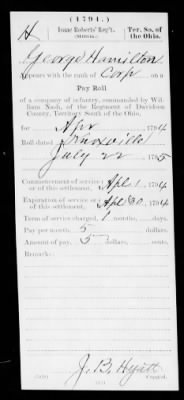 (1794.)
H Isaac Roberts' Reg't. Ter. So. of
(MILITIA.) the Ohio.
George Hamilton
Appears with the rank of Corp on a
Pay Roll
of a company of infantry, commanded by Wil-
liam Nash, of the Regiment of Davidson
County, Territory South of the Ohio,
for Apr , 1794
Roll dated Knoxville
July 22 , 1795
Commencement of service or of this settlement, Apl 1 , 1794
Expiration of service or of this settlement, Apl 30 , 1794
Term of service charged, 1 months, days.
Pay per month, 5 dollars,
Amount of pay, 5 dollars, cents.
Remarks:
J. B. Hyatt
Copyist.